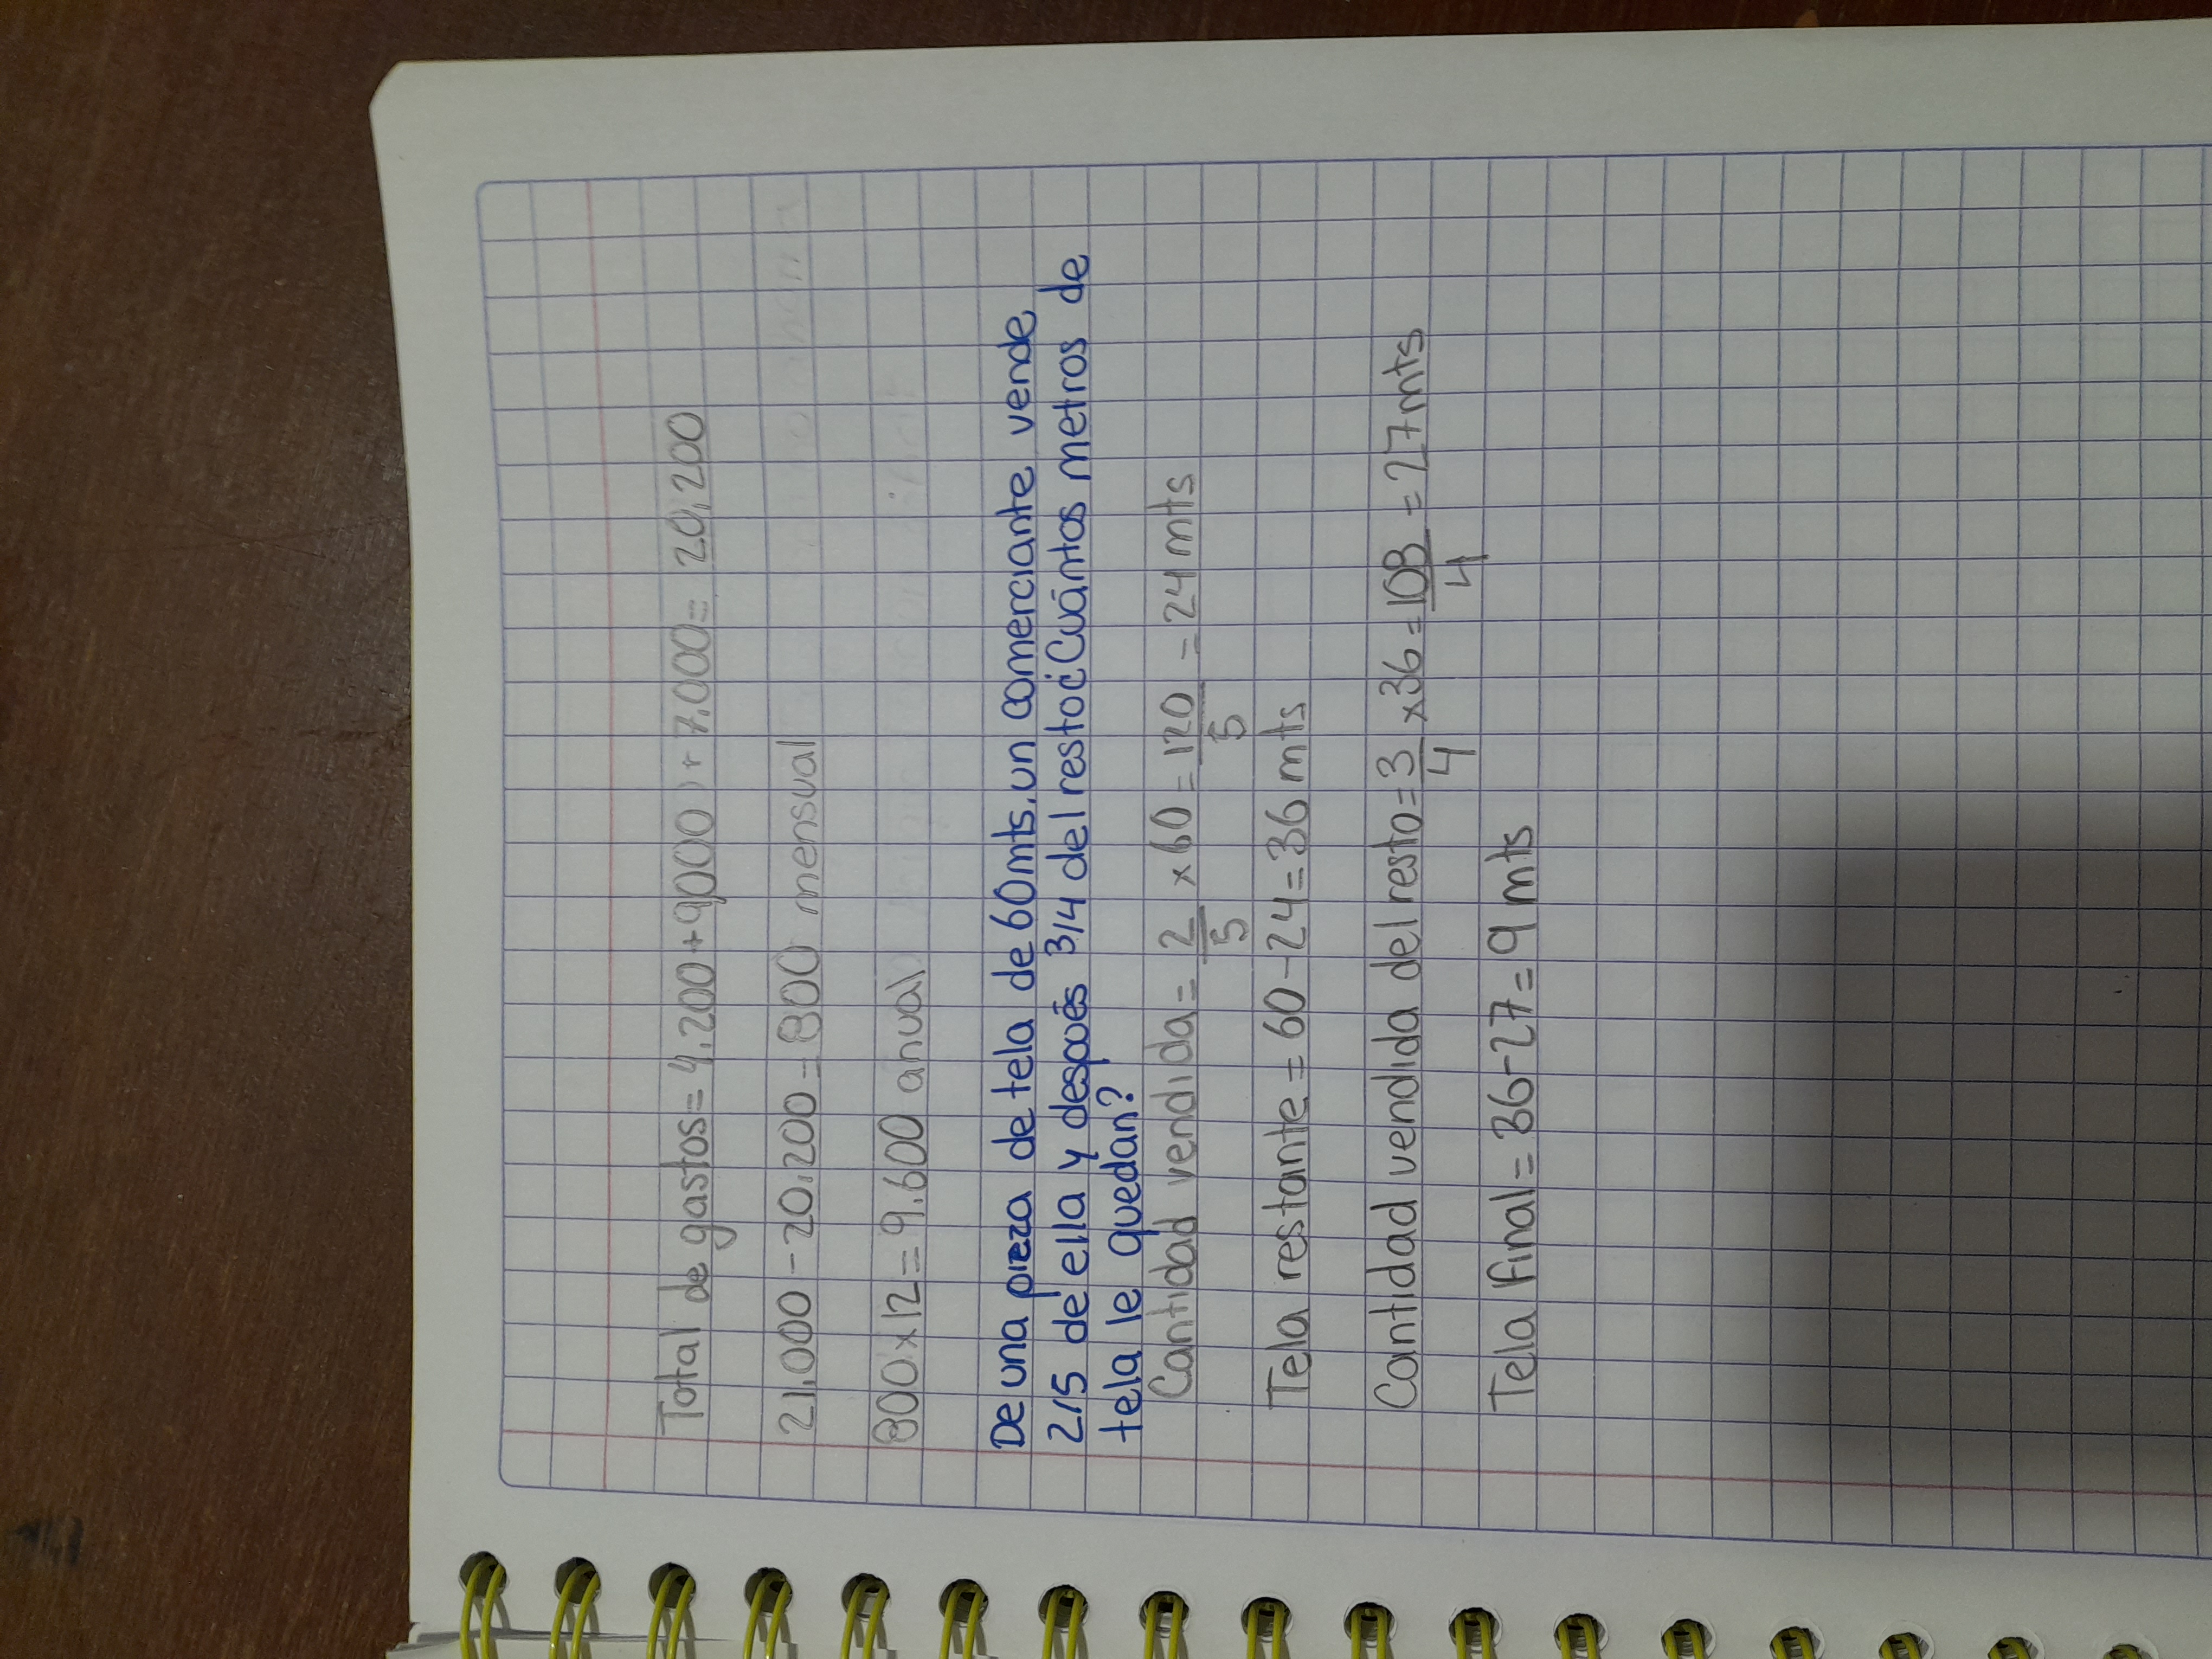 Total de gastos= 4.200+9,000)+7.000= 20,200
21,000-20.200=800 mensual
800x12=9.600 anual
De una pieza de tela de 60mts, un comerciante vende
2/5 de ella y después 3/4 del resto¿Cuántos metros de
tela le quedan?
Cantidad vendida= 2/5 x 60= 120/5 = 24 mts
Tela restante= 60-24=36 mts
Cantidad vendida del resto= 3/4 x36= 108/4 = 27mts
Tela final= 36-27= 9 mts